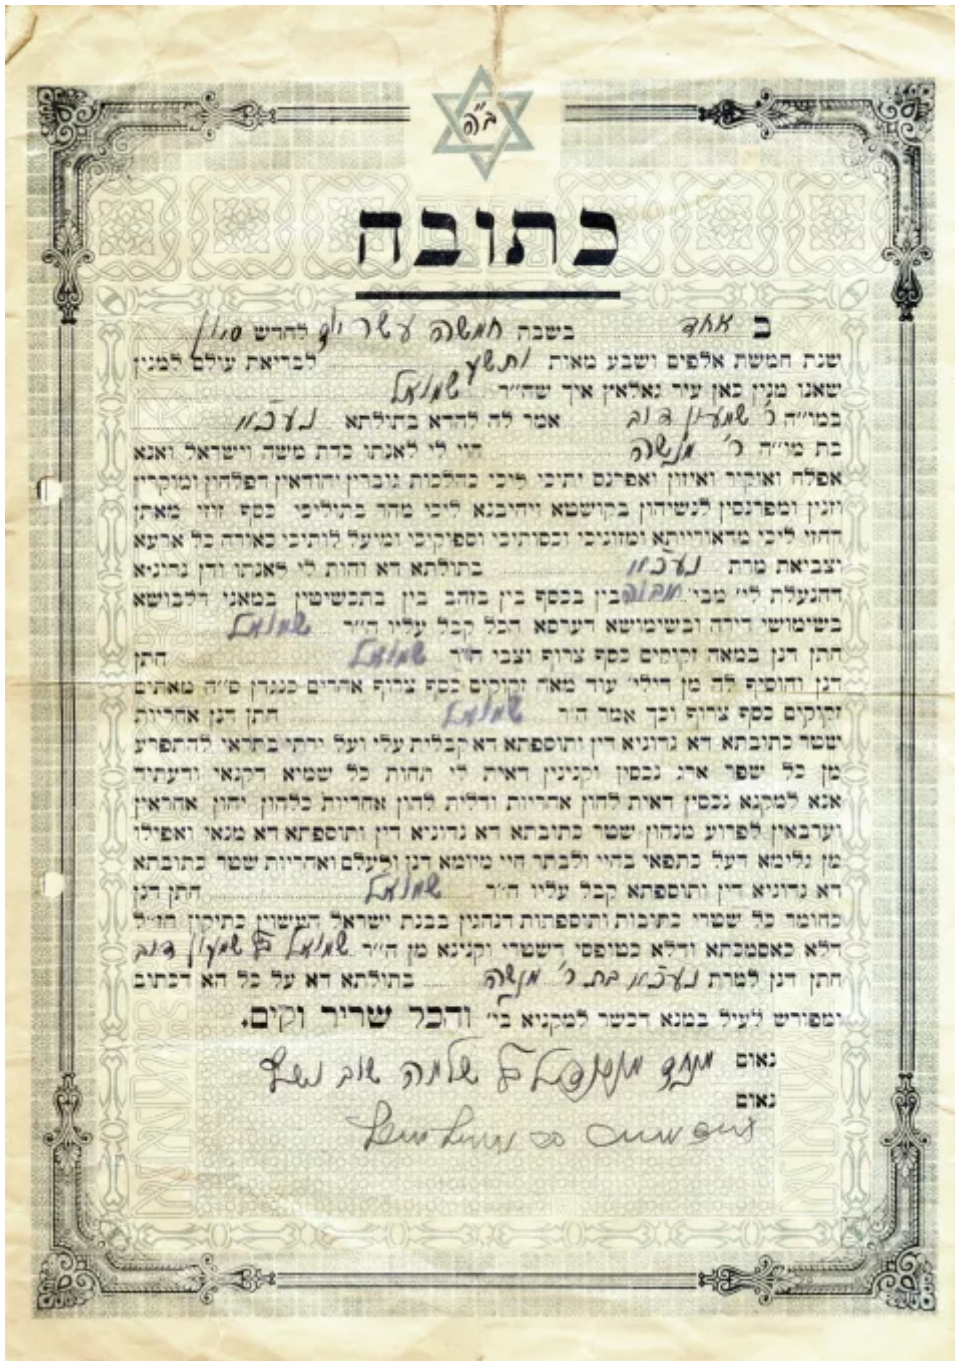 ב"ה
כתובה
ב אחד בשבת חמשה עשר יום לחדש סיון
שנת חמשת אלפים ושבע מאות ותשע לבריאת עולם למנין
שאנו מנין כאן עיר גאלאץ איך שה״ר שמואל
במו״ה ר' שמעון דוב אמר לה להדא בתולתא
בת מו״ה ר' מנשה הוי לי לאנתו כדת משה וישראל ואנא
אפלח ואוקיר ואיזון ואפרנס יתיכי ליכי כהלכות גוברין יהודאין דפלחין ומוקרין
וזנין ומפרנסין לנשיהון בקושטא ויהיבנא ליכי מהר בתוליכי כסף זוזי מאתן
דחזי ליכי מדאורייתא ומזוניכי וכסותיכי וספיקיכי ומיעל לותיכי כאורח כל ארעא
וצביאת מרת בתולתא דא והות לי לאנתו ודן נדוניא
דהנעלת לי׳ מבי בין בכסף בין בזהב בין בתכשיטין במאני דלבושא
בשימושי דירה ובשימושא דערסא הכל קבל עליו ה״ר שמואל
חתן דנן במאה זקוקים כסף צרוף וצבי ה״ר שמואל חתן
דנן והוסיף לה מן דילי׳ עוד מאה זקוקים כסף צרוף אחרים כנגדן ס״ה מאתים
זקוקים כסף צרוף וכך אמר ה״ר שמואל חתן דנן אחריות
שטר כתובתא דא נדוניא דין ותוספתא דא קבלית עלי ועל ירתי בתראי להתפרע
מן כל שפר ארג נכסין וקנינין דאית לי תחות כל שמיא דקנאי ודעתיד
אנא למקנא נכסין דאית להון אחריות ודלית להון אחריות כלהון יהון אחראין
וערבאין לפרוע מנהון שטר כתובתא דא נדוניא דין ותוספתא דא מנאי ואפילו
מן גלימא דעל כתפאי בחיי ולבתר חיי מיומא דנן ולעלם ואחריות שטר כתובתא
דא נדוניא דין ותוספתא קבל עליו ה״ר שמואל חתן דנן
כחומר כל שטרי כתובות ותוספתות דנהגין בבנת ישראל העשוין כתיקון חז״ל
דלא כאסמכתא ודלא כטופסי דשטרי וקנינא מן ה״ר שמואל בן שמעון דוב
חתן דנן למרת בת ר' מנשה בתולתא דא על כל הא דכתוב
ומפורש לעיל במנא דכשר למקניא בי׳ והכל שריר וקים.
נאום שלמה שוב
נאום